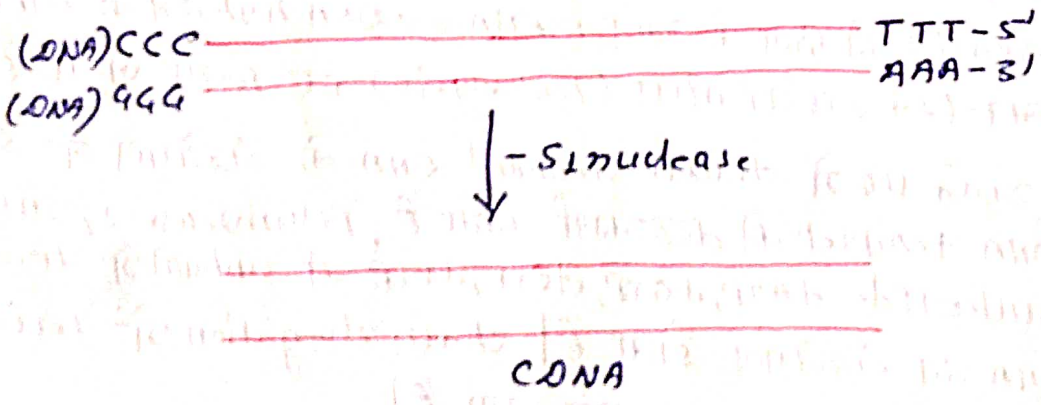 (DNA) CCC TTT-5'
(DNA) GGG AAA-3'
- S1 nuclease
CDNA